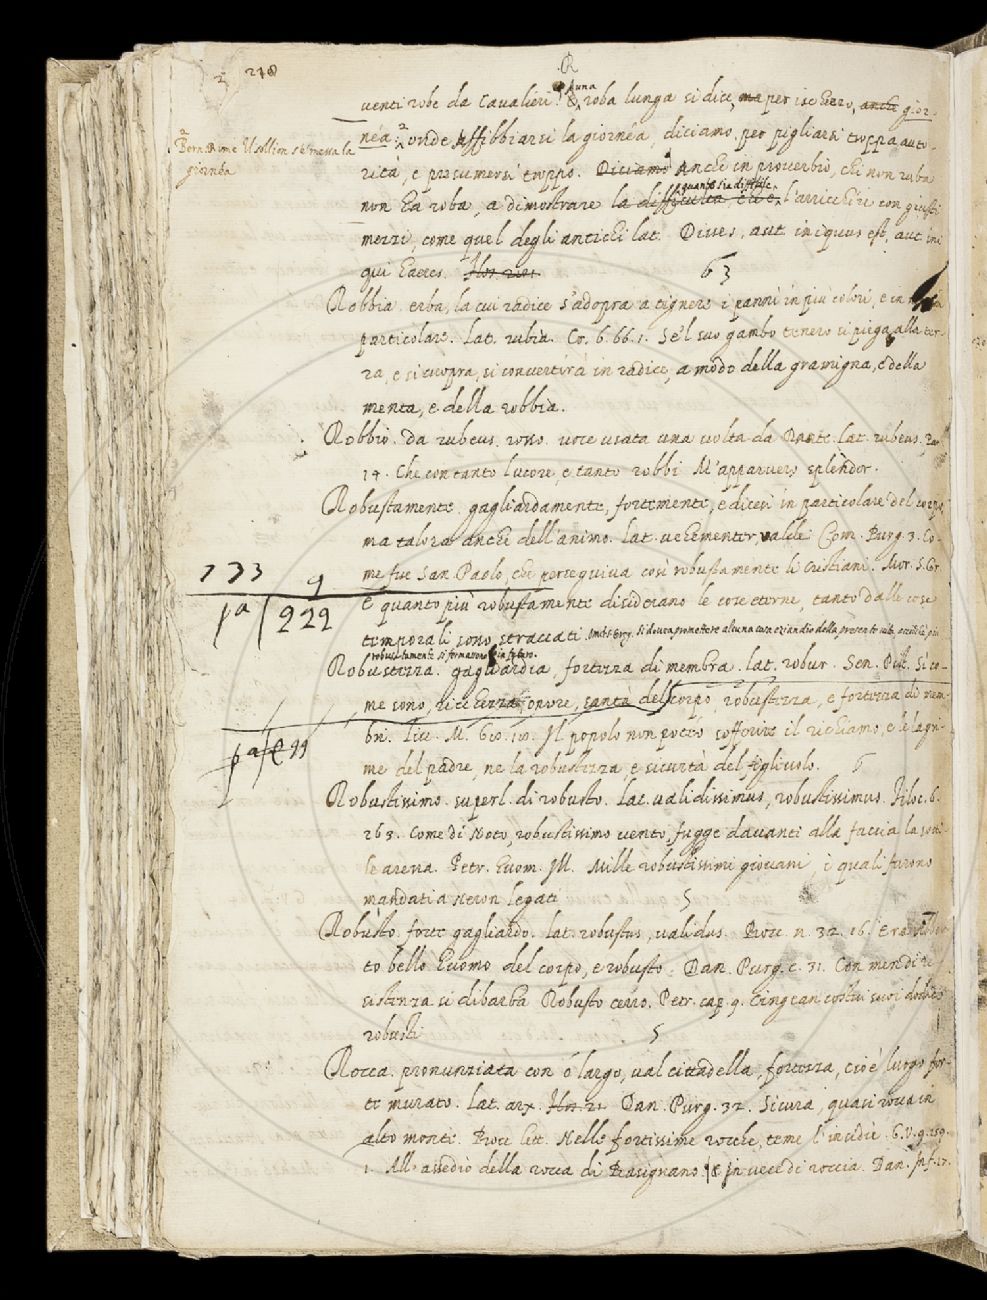 218
R
venti robe da Cavalieri. & una roba lunga si dice, ma per ischerzo, anche gior-
a Bern. rime Usollion s'è messa la
giornéa
néa: a onde Affibbiarsi la giornéa, diciamo, per pigliarsi troppa auto-
rità, e presumersi troppo. Diciamo Anche in proverbio, chi non ruba
non ha roba, a dimostrare la difficultà, che è, quanto sia difficile l'arricchire con giusti
mezzi, come quel degli antichi lat. Dives, aut iniquus est, aut ini
qui haeres.
63
Robbia. erba, la cui radice s'adopra a tignere i panni in più colori, e in
particolare. Lat. rubia. Cr. 6. 66. 1. Se'l suo gambo tenero si piega alla ter-
ra, e si cuopra, si convertirà in radice, a modo della gramigna, e della
menta, e della robbia.
Robbio. da rubeus. rosso. voce usata una volta da Dante. lat. rubeus. Par
14. Che con tanto lucore, e tanto robbi M'apparvero splendor.
Robustamente. gagliardamente, fortemente, e dicesi in particolare del corpo
ma talora anche dell'animo. lat. vehementer, valide Com. Purg. 3. Co-
me fue San Paolo, che perseguiva così robustamente li Cristiani. Mor. S. Gr.
733 9
E quanto più robustamente disiderano le cose eterne, tanto dalle cose
pª 222
temporali sono stracciati. si dovea promettere alcuna cosa eziandio della presente vita, acciò che più
robustamente si fermassono in futuro.
Robustezza. gagliardia, fortezza di membra. lat. robur. Sen. Pist. Si co-
me sono, ricchezza, onore, santà del corpo, robustezza, e fortezza di mem-
bri. Liv. M. Il popolo non potéo sofferire il richiamo, e le lagri-
pª 99
me del padre, ne la robustezza, e sicurtà del figliuolo.
6
Robustissimo. superl. di robusto. Lat. validissimus, robustissimus. Filoc. 6.
263. Come di Noto, robustissimo vento, fugge davanti alla faccia la sotti-
le arena. Petr. Huom. Ill. Mille robustissimi giovani, i quali furono
mandati a Neron legati
5
Robusto. forte gagliardo. lat. robustus, validus. Bocc. n. 32. 16. Era
to bello huomo del corpo, e robusto. Dan. Purg. c. 31. Con men di re
sistenza si dibarba Robusto cerro. Petr. cap. 9. Cingean costui suoi dodici
robusti
5
Rocca. pronunziata con ó largo, val cittadella, fortezza, cioè luogo for-
te murato. Lat. arx. Dan. Purg. 32. Sicura, quasi rocca in
alto monte. Bocc. lett. Nelle fortissime rocche, teme l'insidie. G. V. 9. 259.
1. All'assedio della rocca di Basignano. & in vece di roccia. Dan. Inf. 17.